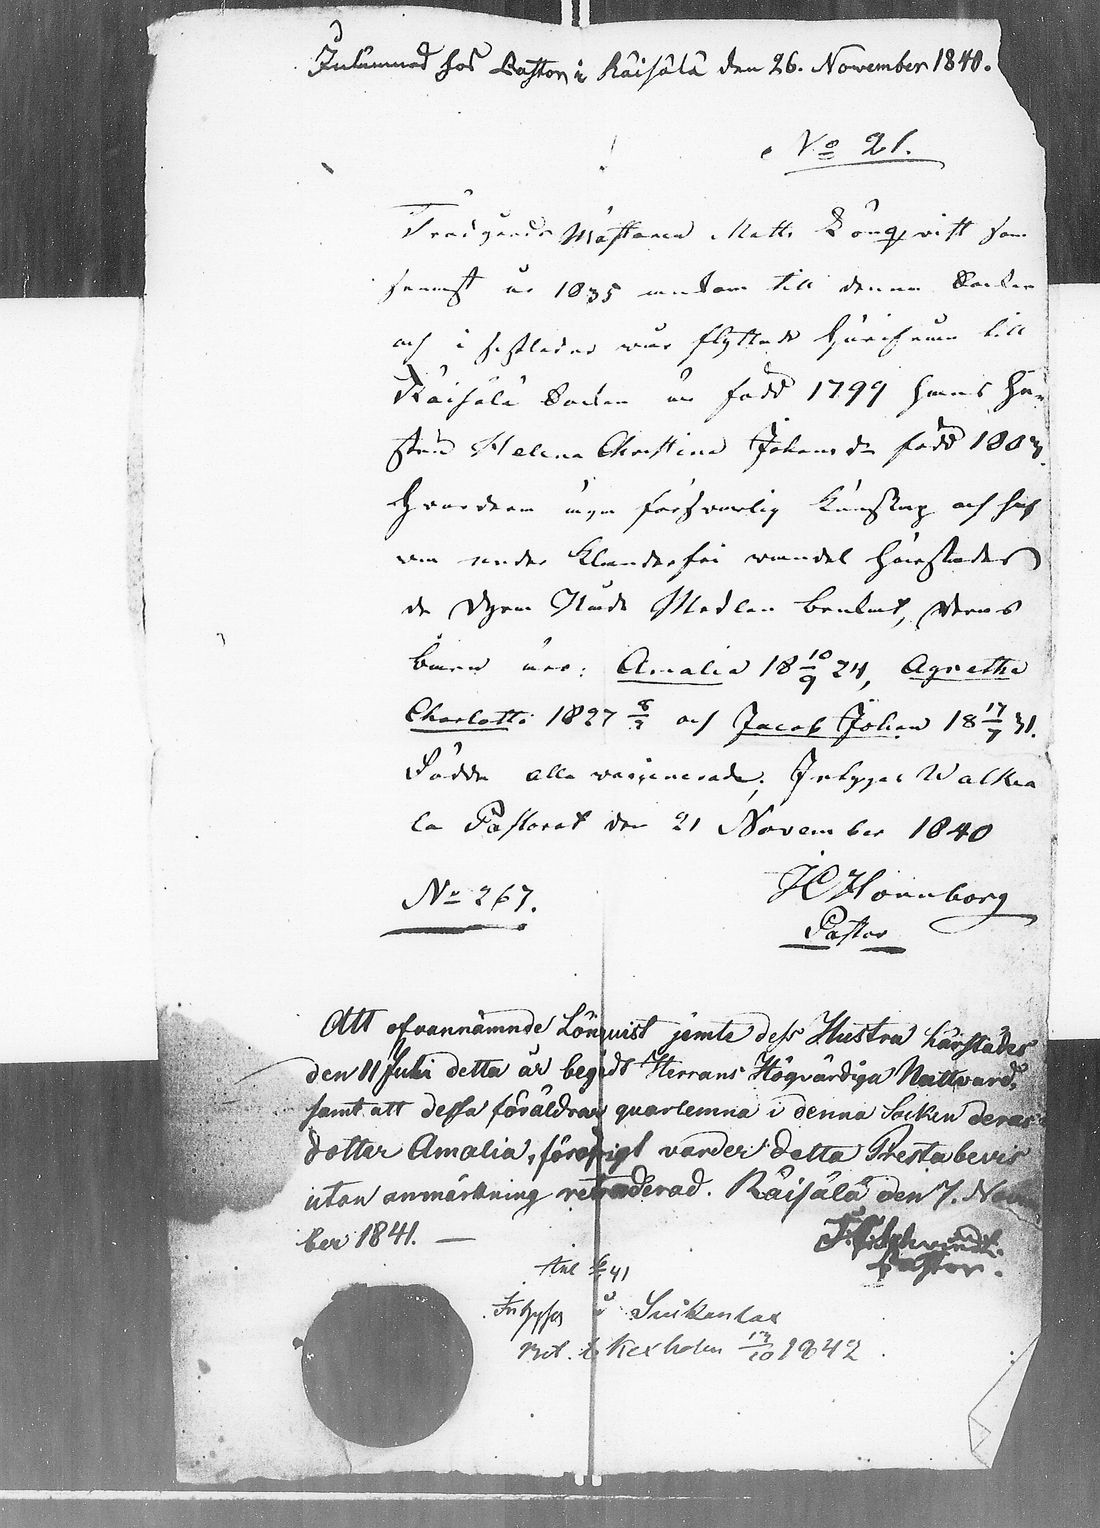 Inlämnad hos Pastorn i Räisälä den 26. November 1840.
No 21.
Trädgårds Mästaren Matts Lönqvist som
sennast år 1835 ankom till denna Socken
och i sistledne war flyttade härifrån till
Räisälä Socken är född 1799 hans Hu-
stru Helena Christina Johansdr född 1803.
Hvardera äga försvarlig kunskap och haf
wa under klanderfri wandel härstädes
de Dyra Nåde Medlen bentwt, deras
barn äro: Amalia 18 10/9 24, Agnetha
Charlotta 1827 8/3 och Jacob Johan 18 17/7 31.
Födde alla waccinerade; Intygar Walkea
la Pastorat den 21 November 1840
No 267.
HHonnborg
Pastor
Att ofvannämnde Lönquist jemte dess Hustru härstädes
den 11 Juli detta år begådt Herrans Högvärdiga Nattvard,
samt att dessa föräldrar quarlemna i denna Socken deras
dotter Amalia, föröfrigt varder detta Prestabevis
utan anmärkning retraderad. Räisälä den 7. Novem
ber 1841. —
Pastor.
41
Intygas
Kexholm 13/10 1842